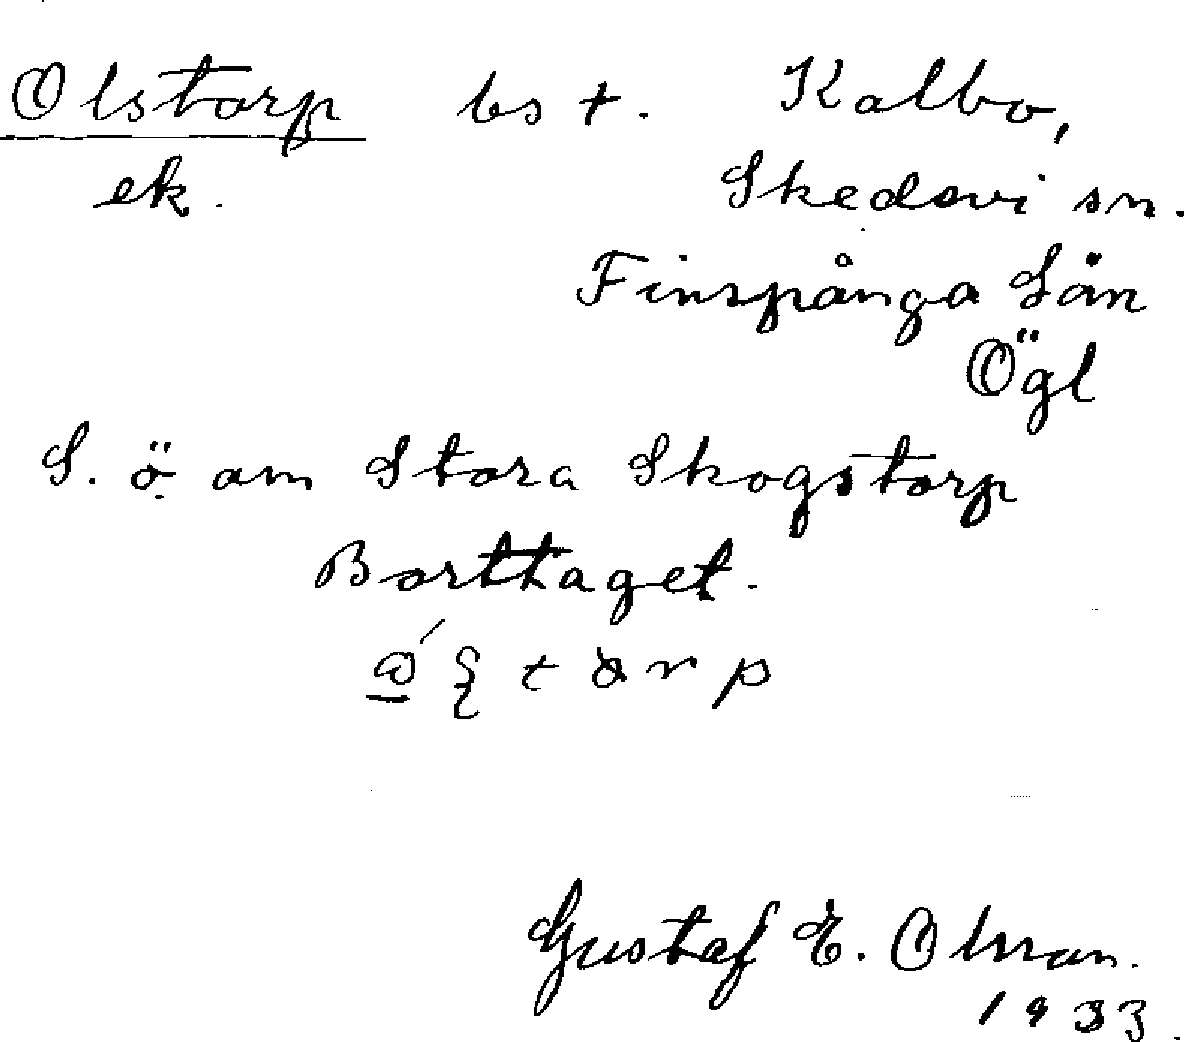 Olstorp bst. Kalbo,
ek. Skedevi sn.
Finspånga Län
Ögl
S. ö om Stora Skogstorp
Borttaget.
Gustaf E. Olsson.
1933